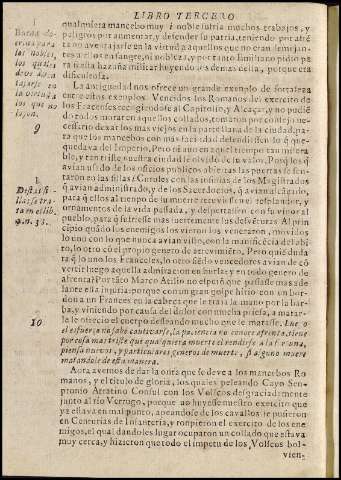 LIBRO TERCERO
qualquiera mancebo muy noble sufria muchos trabajos, y
peligros por aumentar, y defender su patria, teniendo por afré
ta no aventajarse en la virtud a aquellos que no eran semejan-
tes a ellos en sangre, ni nobleza, y por tanto Emiliano pidio pa
ra si esta hazaña militar huyendo los demas della, porque era
dificultosa.
La antiguedad nos ofrece un grande exemplo de fortaleza
entre estos exemplos. Vencidos los Romanos del exercito de
los Franceses recogiendose al Capitolio, y Alcaçar, y no pudié
do todos morar en aquellos collados, tomaron por consejo ne-
cessario dexar los mas viejos en la parte llana de la ciudad, pa-
ra que los mancebos con mas facilidad defendiessen lo q̃ que-
quedava del Imperio, Pero ni aun en aquel tiempo tan misera
ble, y tan triste nuestra ciudad se olvidò de su valor, Porq̃ los q̃
avian usado de los oficios publicos abiertas las puertas se sen-
taron en las sillas Curules con las insinias de los Magistrados
q̃ avian administrado, y de los Sacerdocios, q̃ avian alcançado,
para q̃ ellos al tiempo de su muerte retuviessen el resplandor, y
ornamentos de la vida passada, y despertassen con su vigor al
pueblo, para q̃ sufriesse mas fuertemente sus desventuras Al prin
cipio quádo los enemigos los vieron los veneraron, movidos
lo uno con lo que nunca avian visto, con la manificencia del abi-
to, lo otro cõ el propio genero de atrevimiento, Pero quié duda
ra q̃ lo uno los Franceses, lo otro siédo vencedores avian de cõ
vertir luego aquella admiracion en burla, y en todo genero de
afrenta? Por táto Marco Atilio no esperò que passasse mas ade
lante esta injuria: porque con un gran golpe hirio con un bor-
don a un Frances en la cabeça que le traia la mano por la bar-
ba, y viniendo por causa del dolor con mucha priessa, a matar-
le le ofrecio el cuerpo desseando mucho que le matasse. Que
el esfuerço no sabe cautivarse, la paciencia no conoce afrenta, tiene
por cosa mas triste que qualquiera muerte el rendirse a la fortuna,
piensa nuevos, y particulares generos de muerte, si alguno muere
matandole de esta manera.
Aora avemos de dar la onra que se deve a los mancebos Ro
manos, y el titulo de gloria, los quales peleando Cayo Sem-
pronio Atratino Consul con los Volscos desgraciadamente
junto al rio Verrugo, porque no huyesse nuestro exercito que
ya estava en mal punto, apeandose de los cavallos se pusieron
en Centurias de Infanteria, y rompieron el exercito de los ene-
migos, el qual dandoles lugar ocuparon un collado que estava
muy cerca, y hizieron que todo el impetu de los Volscos bol-
vien-
9
10